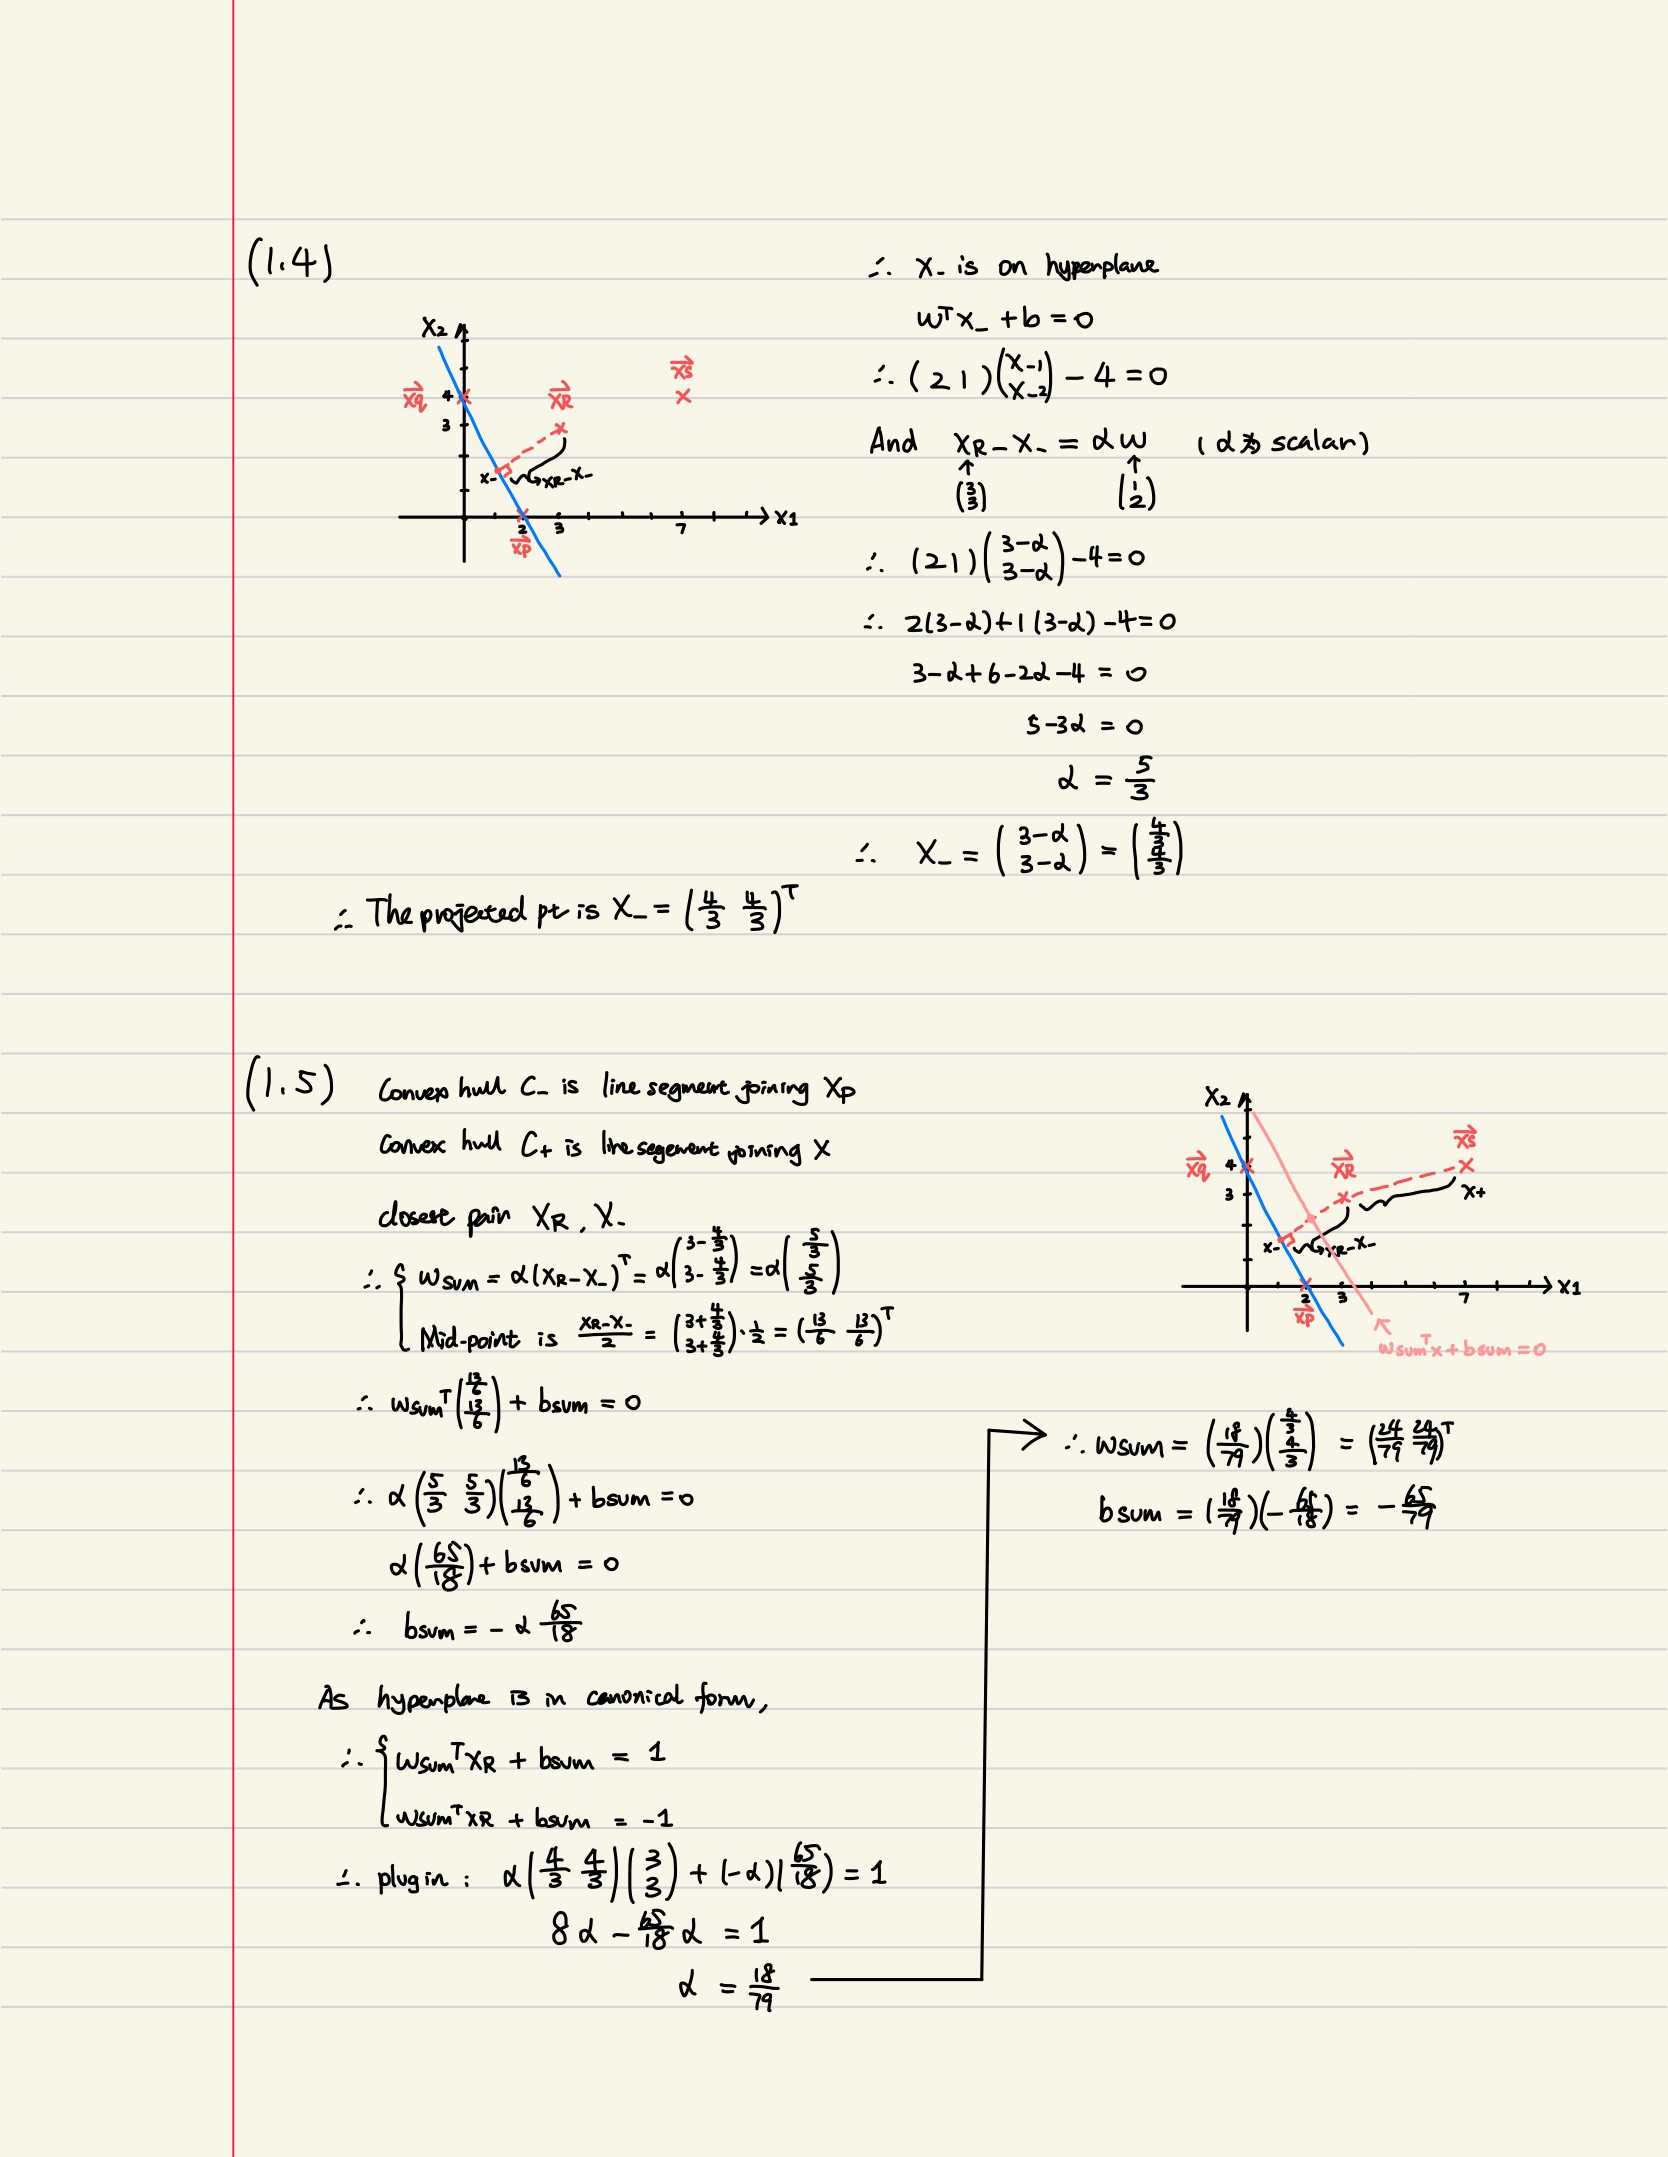 (1.4)
X2
xq
4
3
xR
xs
x-
xR-x-
2
3
7
x1
xp
∴ X- is on hyperplane
wᵀx- + b = 0
∴ (2 1)(x-1 x-2) - 4 = 0
And xR - x- = αw (α为 scalar)
↑ ↑
(3 3) (1 2)
∴ (2 1)(3-α 3-α) - 4 = 0
∴ 2(3-α)+1(3-α)-4=0
3-α+6-2α-4 = 0
5-3α = 0
α = 5/3
∴ X- = (3-α 3-α) = (4/3 4/3)
∴ The projected pt is X- = (4/3 4/3)ᵀ
(1.5)
Convex hull C- is line segment joining Xp
Convex hull C+ is line segement joining X
closest pain XR, X-
∴ { wsum = α(XR-X-)ᵀ = α(3-4/3 3-4/3) = α(5/3 5/3)
Mid-point is XR-X-/2 = (3+4/3 3+4/3)·1/2 = (13/6 13/6)ᵀ
∴ wsumᵀ(13/6 13/6) + bsum = 0
∴ α(5/3 5/3)(13/6 13/6) + bsum = 0
α(65/18) + bsum = 0
∴ bsum = -α 65/18
As hyperplane is in canonical form,
∴ { wsumᵀXR + bsum = 1
wsumᵀXR + bsum = -1
∴ plug in : α(4/3 4/3)(3 3) + (-α)(65/18) = 1
8α - 65/18 α = 1
α = 18/79
X2
xq
4
3
xR
xs
x+
x-
xR-x-
2
3
7
x1
xp
wsumᵀx + bsum = 0
∴ wsum = (18/79)(4/3 4/3) = (24/79 24/79)ᵀ
bsum = (18/79)(-65/18) = -65/79